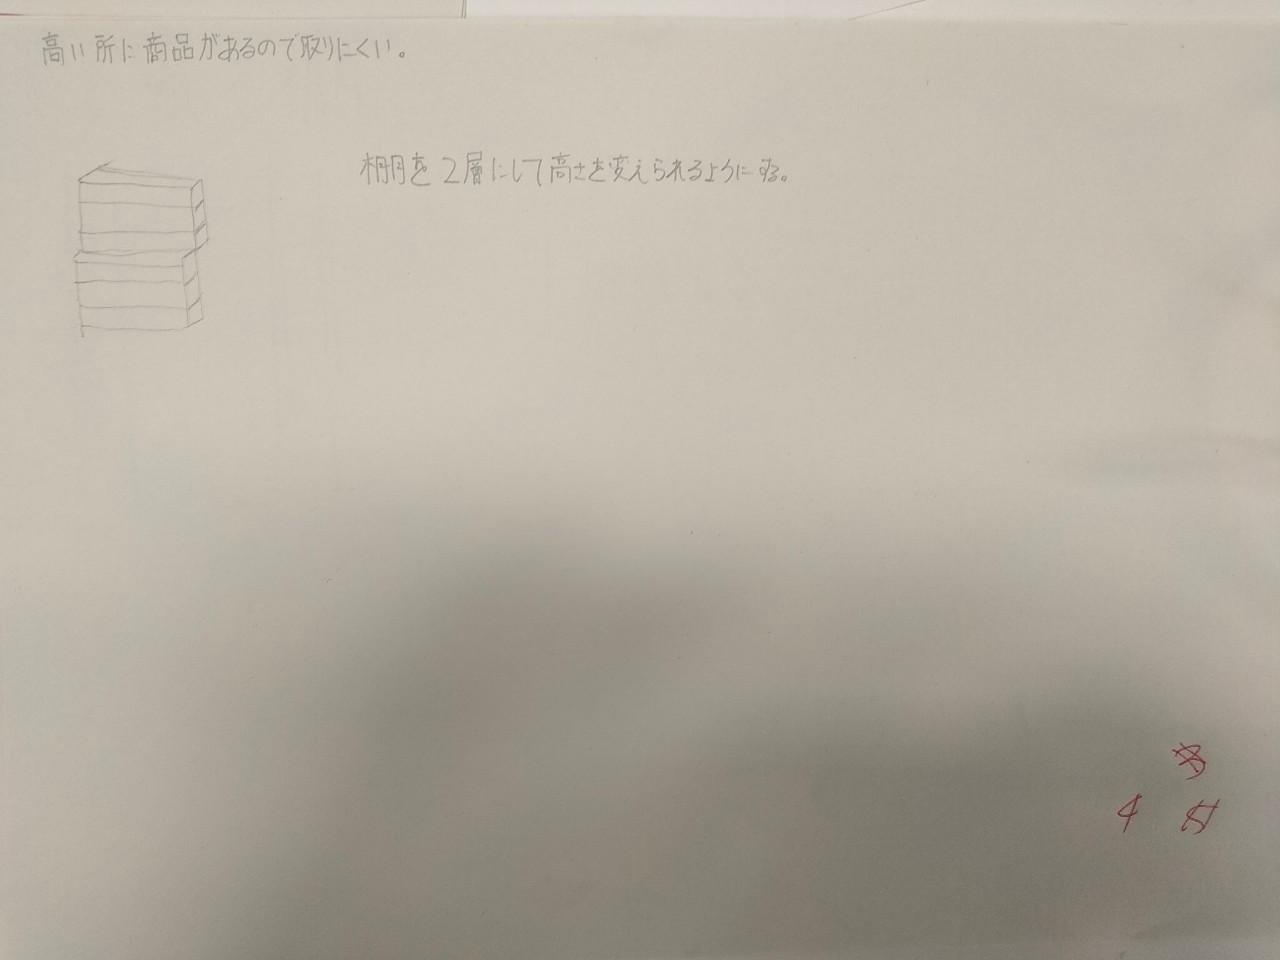 高い所に商品があるので取りにくい。
棚を2層にして高さを変えられるようにする。
4